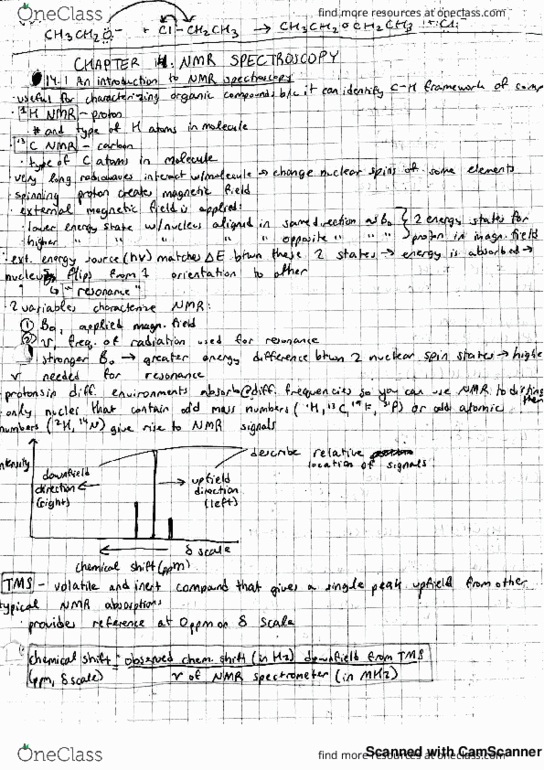 OneClass
find more resources at oneclass.com
CH3CH2O- + Cl-CH2CH3 → CH3CH2OCH2CH3 + Cl-
find more resources at oneclass.com
CHAPTER 14: NMR SPECTROSCOPY
14.1 An introduction to NMR spectroscopy
· useful for characterizing organic compounds b/c it can identify C-H framework of comp
· ¹H NMR - proton
· # and type of H atoms in molecule
· ¹³C NMR - carbon
· type of C atoms in molecule
very long radiowaves interact w/molecule → change nuclear spins of some elements
spinning proton creates magnetic field
· external magnetic field is applied:
· lower energy state w/nucleus aligned in same direction as B₀ } 2 energy states for
· higher " " " " opposite " " " proton in magn. field
· ext. energy source (hν) matches ΔE btwn these 2 states → energy is absorbed →
nucleus flips from 1 orientation to other
↳ "resonance"
· 2 variables characterize NMR:
① B₀, applied magn. field
② ν, freq. of radiation used for resonance
stronger B₀ → greater energy difference btwn 2 nuclear spin states → highe
ν needed for resonance
protons in diff. environments absorb @ diff. frequencies so you can use NMR to disting
them
only nuclei that contain odd mass numbers (¹H, ¹³C, ¹⁹F, ³¹P) or odd atomic
numbers (²H, ¹⁴N) give rise to NMR signals
ntensity
downfield
direction ←
(right)
→ upfield
direction
(left)
describe relative
location of signals
δ scale
chemical shift (ppm)
TMS - volatile and inert compound that gives a single peak upfield from other
typical NMR absorptions
· provides reference at 0ppm on δ scale
chemical shift = observed chem. shift (in Hz) downfield from TMS
(ppm, δ scale) ν of NMR spectrometer (in MHz)
OneClass
find more resources at oneclass.com
Scanned with CamScanner